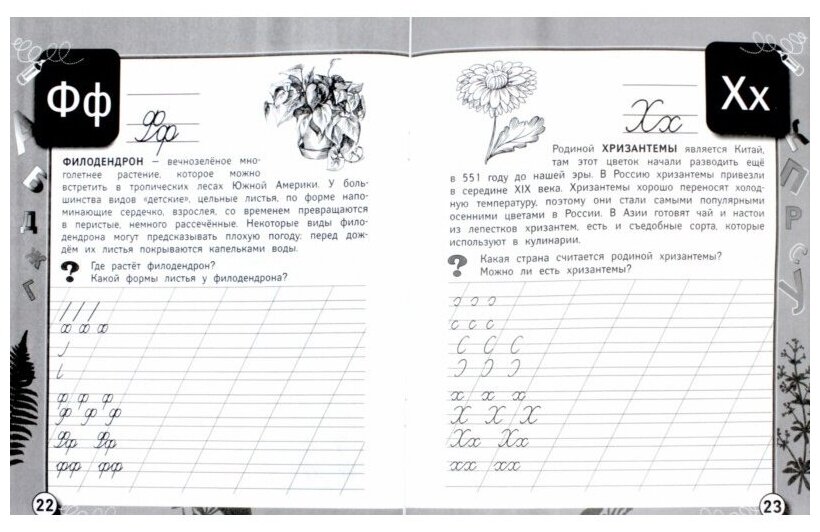 Фф
Фф
ФИЛОДЕНДРОН – вечнозелёное мно-
голетнее растение, которое можно
встретить в тропических лесах Южной Америки. У боль-
шинства видов «детские», цельные листья, по форме напо-
минающие сердечко, взрослея, со временем превращаются
в перистые, немного рассечённые. Некоторые виды фило-
дендрона могут предсказывать плохую погоду: перед дож-
дём их листья покрываются капельками воды.
? Где растёт филодендрон?
Какой формы листья у филодендрона?
ф ф ф
ф ф ф
Фф Фф
фф фф
22
А
Б
Д
Ж
Г
Хх
Хх
Родиной ХРИЗАНТЕМЫ является Китай,
там этот цветок начали разводить ещё
в 551 году до нашей эры. В Россию хризантемы привезли
в середине XIX века. Хризантемы хорошо переносят холод-
ную температуру, поэтому они стали самыми популярными
осенними цветами в России. В Азии готовят чай и настои
из лепестков хризантем, есть и съедобные сорта, которые
используют в кулинарии.
? Какая страна считается родиной хризантемы?
Можно ли есть хризантемы?
с с с
С С С
х х х
Х Х Х
Хх Хх
хх хх
23
К
П
Р
С
У